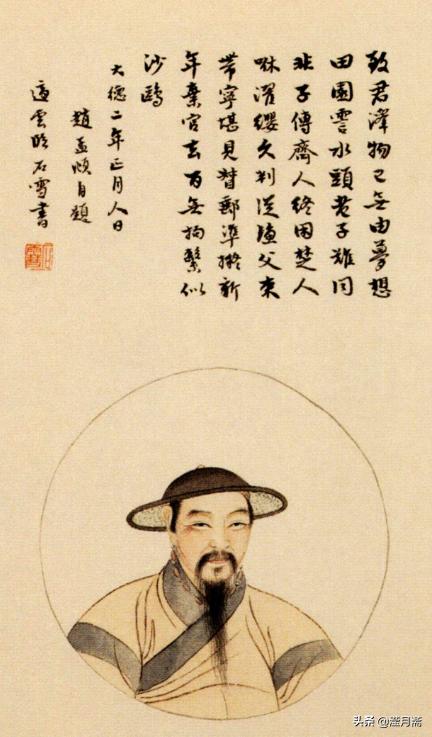 致君澤物已无由夢想
田園雲水頭老子難同
非子傳齊人終困楚人
咻濯纓久判從漁父束
帶寧堪見督郵準擬新
年棄官去百无拘繫似
沙鷗
大德二年正月人日
趙孟頫自題
適雲臨石雪書
头条 @